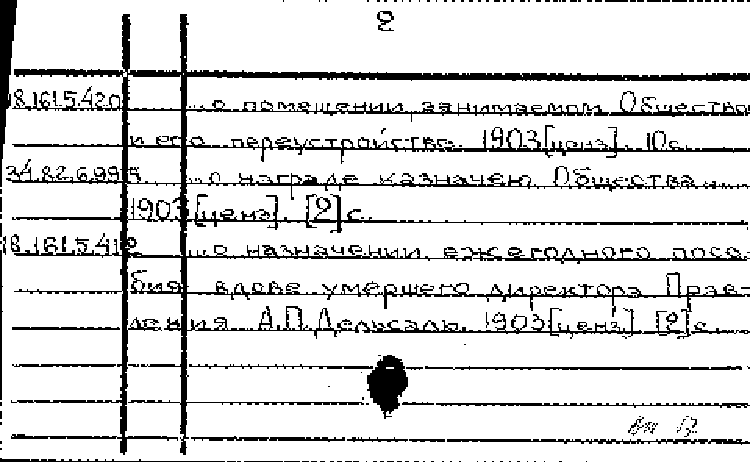 2
18.161.5.420 ...о помещении, занимаемом Общество
и его переустройстве. 1903[ценз]. 10с.
34.82.6.99 ...о награде казначею Общества...
1903[ценз]. [2]с.
18.161.5.412 ...о назначении ежегодного посо-
бия вдове умершего директора Прав-
ления А.П. Дельсаль. 1903[ценз]. [2]с.